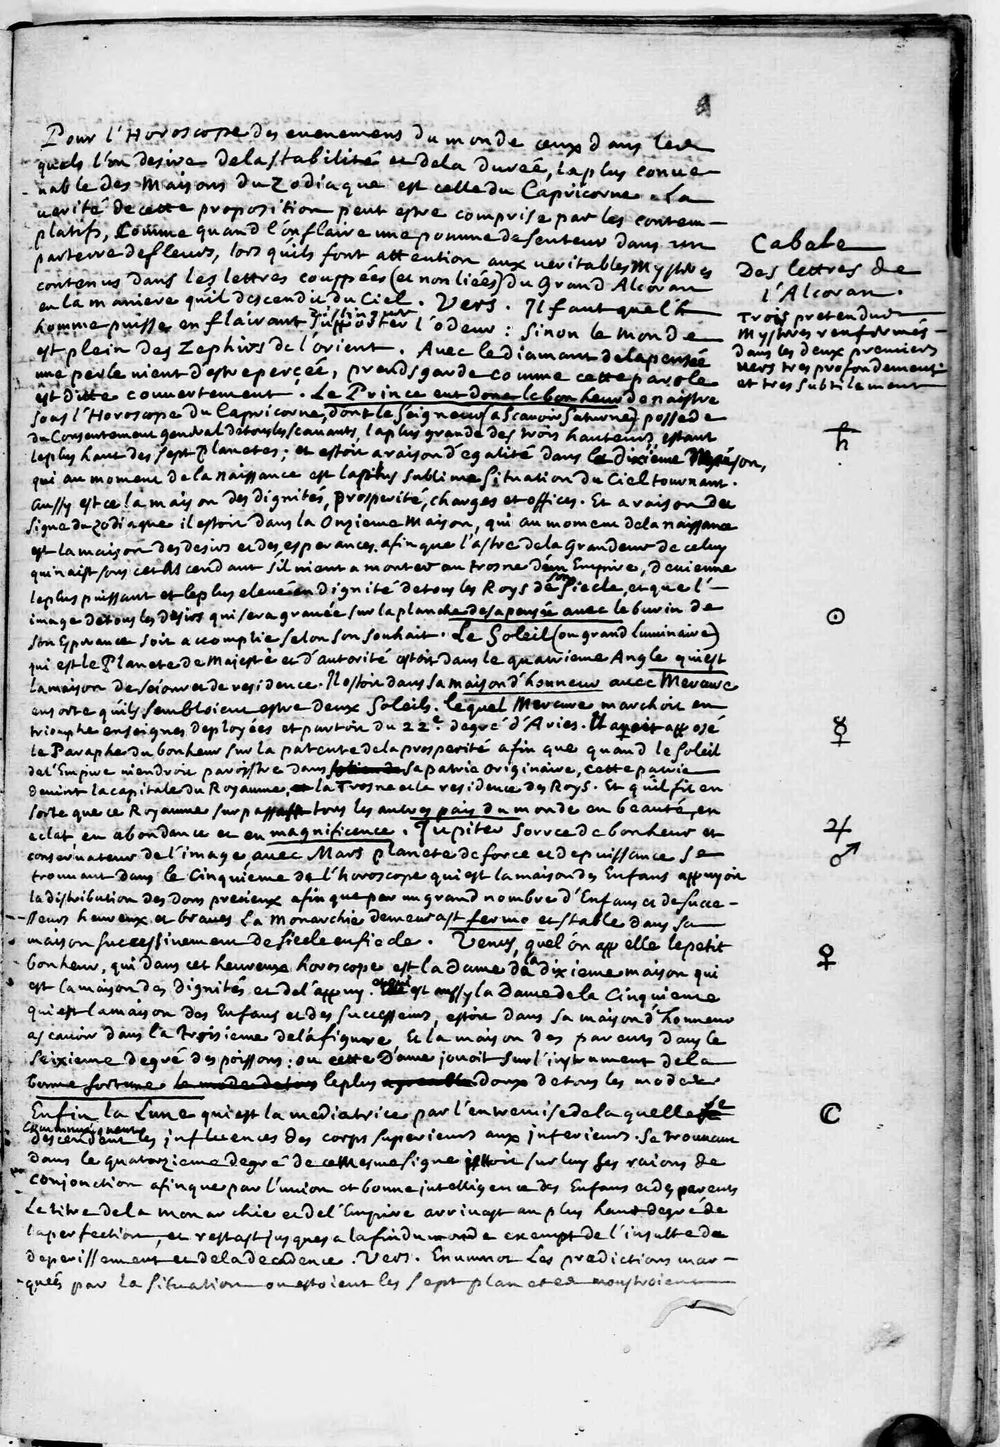 Pour l'Horoscope des evenemens du monde ceux dans les
quels l'on desire de la stabilité et de la dureé, la plus conve
nable des Maisons du Zodiaque est celle du Capricorne. La
verité de cette proposition peut estre comprise par les contem-
platifs, Comme quand l'on flaire une pomme de senteur dans un
parterre de fleurs, lors qu'ils font attention aux veritables Mystères
contenus dans les lettres couppées (et non liées) du Grand Alcoran
en la maniere qu'il descendit du Ciel. Vers. Il faut quel'h
homme puisse en flairant distinguer l'odeur: Sinon le monde
est plein des Zephirs de l'orient. Avec le diamant de la pensée
une perle vient d'estre percée, prends garde comme cette parole
est ditte couvertement. Le Prince eut donc le bonheur de naistre
sous l'Horoscope du Capricorne, dont le Seigneur (a scavoir Saturne) possede
du Consentement general de tous les scavants, la plus grande des trois hauteurs, estant
le plus haut des sept Planetes; et estoit a raison d'egalité dans la dixieme Maison,
qui au moment de la naissance est la plus sublime situation du Ciel tournant.
Aussy est ce la maison des dignités, prosperité, charges et offices. Et a raison du
signe du Zodiaque il estoit dans la Onzieme Maison, qui au moment de la naissance
est la maison des desirs et des esperances. afin que l'astre de la Grandeur de celuy
qui naist sous cet Ascendant s'il vient a monter au trosne d'un Empire, devienne
le plus puissant et le plus elevé en dignité de tous les Roys de son Siecle, et que l'-
image de tous les desirs qui sera gravée sur la planche de sa pensée avec le burin de
son Esperance soit accomplie selon son souhait. Le Soleil (ou grand luminaire)
qui est le Planete de Majesté et d'autorité estoit dans le quatrieme Angle qui est
la maison de sejour et de residence. Il estoit dans sa maison d'honneur avec Mercure
en sorte qu'ils sembloient estre deux Soleils. lequel Mercure marchoit en
triomphe enseignes deployées et partoit du 22e. degré d'Aries. Il avoit apposé
le Paraphe du bonheur sur la patente de la prosperité afin que quand le Soleil
de l'Empire viendroit paroistre dans sa patrie originaire, cette patrie
devint la capitale du Royaume, la Trosne et la residence des Roys. Et qu'il fit en
sorte que ce Royaume surpassast tous les autres pais du monde en beauté, en
eclat, en abondance et en magnificence. Jupiter source de bonheur et
conservateur de l'image, avec Mars planete de force et de puissance se
trouvant dans le Cinquieme de l'horoscope qui est la maison des Enfans appuyoit
la distribution des dons precieux afin que par un grand nombre d'Enfans et de succe-
sseurs heureux et braves La monarchie demeurast ferme et stable dans sa
maison successivement de siecle en siecle. Venus, quel'on appelle le petit
bonheur, qui dans cet heureux horoscope est la Dame de la dixieme maison qui
est la maison des Dignités et de l'appuy. et qui est aussy la Dame de la Cinquieme
qui est la maison des Enfans et des successeurs, estoit dans sa maison d'honneur
ascavoir dans la troisieme de la figure, Et la maison des parents dans le
seixieme degré des poissons: ou cette Dame jouoit sur l'instrument de la
bonne fortune le mode de tous le plus agreable doux de tous les modes
Enfin la Lune qui est la mediatrice par l'entremise de la quelle se
Communiquent
descendent les influences des corps superieurs aux inferieurs. Se trouvant
dans le quatorzieme degré de ce Mesme signe jettoit sur luy ses raions de
conjonction afin que par l'union et bonne intelligence des Enfans et des parents
Le titre de la monarchie et de l'Empire arrivast au plus haut degré de
la perfection, et restast jusques a la fin du monde exempt de l'insulte du
deperissement et de la decadence. Vers. En un mot Les predictions mar-
quées par la situation ou estoient les sept planetes monstroient
Cabale
Des lettres de
l'Alcoran.
Trois pretendus
Mystères renfermés
dans les deux premiers
vers tres profondement
et tres subtilement
♄
☉
☿
♃
♂
♀
☾